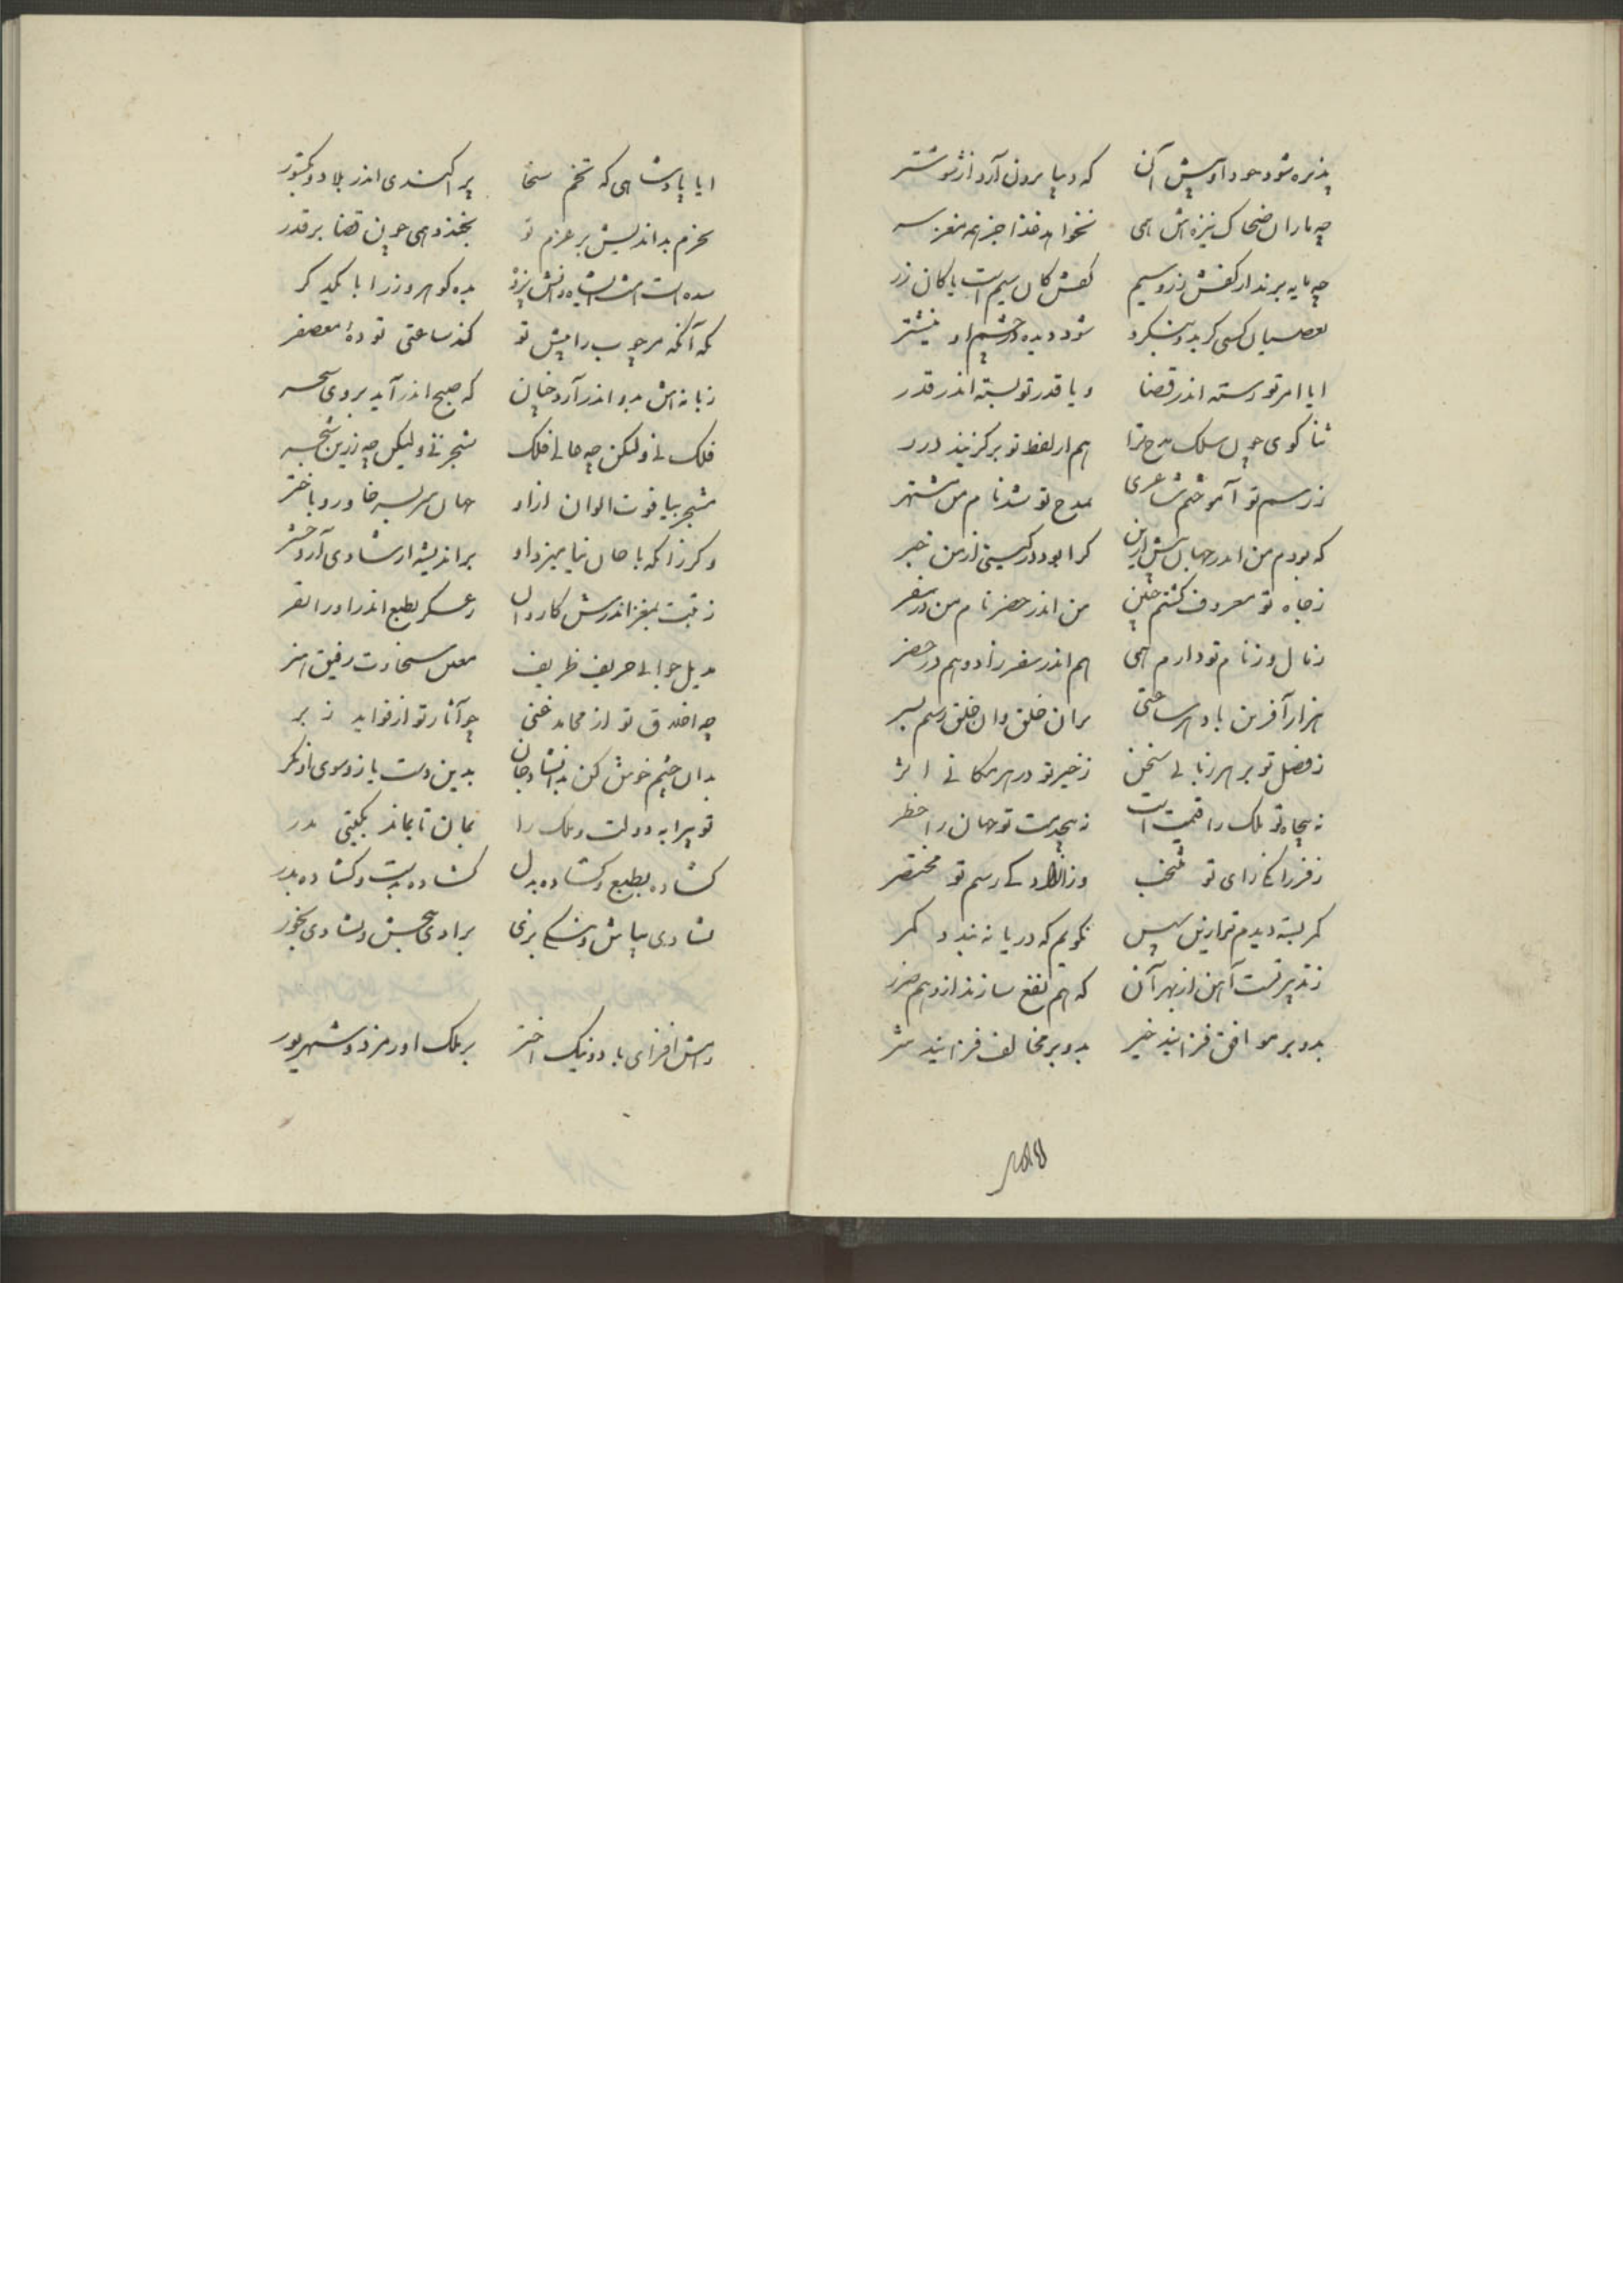 پذیره شود جود او پیش آن که دنیا برون آرد از شوشتر
چه ماران ضحاک نیزه‌اش همی نخواهد غذا جز همه مغز سر
چه مایه برند از کفش زر و سیم کفش کان سیم است یا کان زر
بعصیان کسی کو بدو بنگرد شود دیده در چشم او نیشتر
ایا امر تو رسته اندر قضا و یا قدر تو بسته اندر قدر
ثنا کوی چون سلک مدح ترا هم از لفظ تو برگزیند درر
ز رسم تو آموختم شاعری بمدح تو شد نام من مشتهر
که بودم من اندر جهان پیش ازین کرا بود در گیتی از من خبر
ز جاه تو معروف گشتم چنین من اندر حضر نام من در سفر
ز مال و ز نام تو دارم همی هم اندر سفر زاد و هم در حضر
هزار آفرین باد هر ساعتی بران خلق و آن خلق و رسم و سیر
ز فضل تو بر هر زبانی سخن ز خیر تو در هر مکانی اثر
نه بیجاه تو ملک را قیمت است نه بیخدمت تو جهان را خطر
ز فرزانگی رای تو منتخب وز آزادگی رسم تو مختصر
کمر بسته دیدم ترا زین سپس نگویم که دریا نه بندد کمر
ز تدبیر تست آهن از بهر آن که هم نفع سازند ازو هم ضرر
بدو بر موافق فزایند خیر بدو بر مخالف فزایند شر
ایا پادشاهی که تخم سخا پراکندی اندر بلاد و کشور
بحزم بداندیش بر عزم تو بخندد همی چون قضا بر قدر
سده است امشب ای شاه دانش پژوه بده کوهر و زر ابا یکدیگر
که آنکه مر چوب را پیش تو کند ساعتی تودهٔ معصفر
زبانه‌اش بدو اندر آرد چنان که صبح اندر آید بروی سحر
فلک نی ولیکن چه حالی فلک شجر نی ولیکن چه زرین شجر
مشجر بیاقوت الوان ازو جهان سربسر خاور و باختر
و گر زانکه با جان نیامیزد او بر اندیشه از شادی آرد حشر
ز تبت بمغز اندرش کاروان ز عسکر بطبع اندر او را نفر
بدیل جوانی حریف ظریف معین سخاوت رفیق هنر
چه اخلاق تو از محامد غنی چو آثار تو از فواید ز بر
بدان چشم خوش کن بدان شاد جان بدین دست یاز و سوی او نگر
تو پیرایه دولت و ملک را بمان تا بماند بگیتی مدر
گشاده بطبع و گشاده بدل گشاده بدست و گشاده بدر
بشادی بباش و بنیکی بزی برادی ببخش و بشادی بخور
دانش افزای باد و نیک اختر بر ملک اورمزد و شهریور